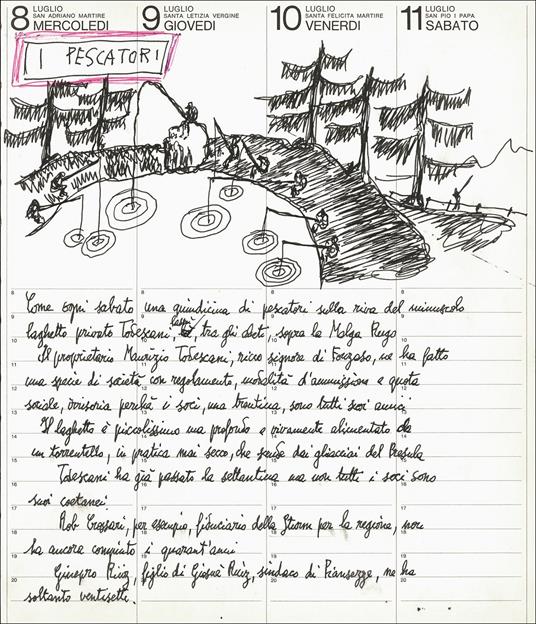 8 LUGLIO SAN ADRIANO MARTIRE MERCOLEDI
9 LUGLIO SANTA LETIZIA VERGINE GIOVEDI
10 LUGLIO SANTA FELICITA MARTIRE VENERDI
11 LUGLIO SAN PIO I PAPA SABATO
I PESCATORI
Come ogni sabato una quindicina di pescatori sulla riva del minuscolo
laghetto privato Todescani, tra gli abeti, sopra la Malga Puzo
Il proprietario Maurizio Todescani, ricco signore di Fonzaso, ne ha fatto
una specie di società con regolamento, modalità d'ammissione e quota
sociale, irrisoria perché i soci, una trentina, sono tutti suoi amici.
Il laghetto è piccolissimo ma profondo e vivamente alimentato da
un torrentello, in pratica mai secco, che scende dai ghiacciai del
Todescani ha già passato la settantina ma non tutti i soci sono
suoi coetanei.
Rob Crossari, per esempio, fiduciario della Sturm per la regione, non
ha ancora compiuto i quarant'anni
Ginepro Ruiz, figlio di Giosuè Ruiz, sindaco di, ne ha
soltanto ventisette.